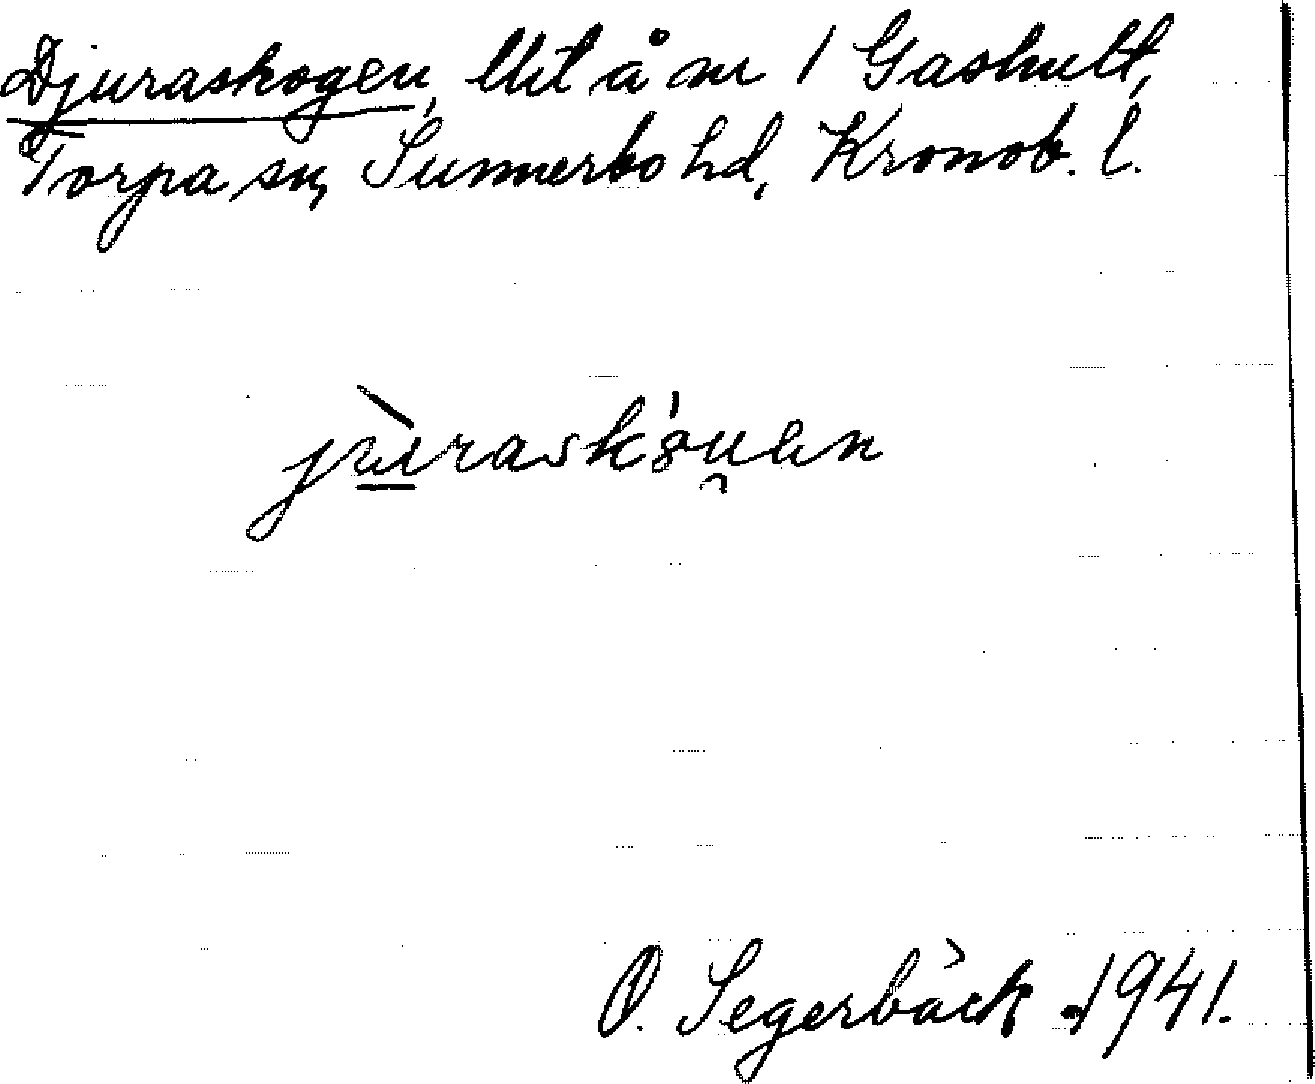 Djuraskogen, Utä å nr 1 Gashult,
Torpa sn, Sunnerbo hd, Kronob. l.
jùraskóu̯en
O. Segerbäck 1941.